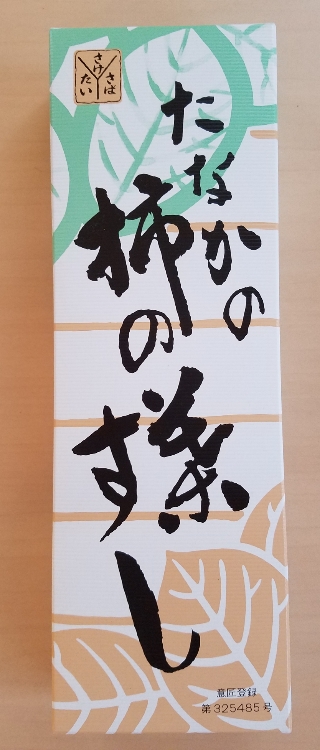 さけ
さば
たい
たなかの
柿の葉
すし
意匠登録
第325485号